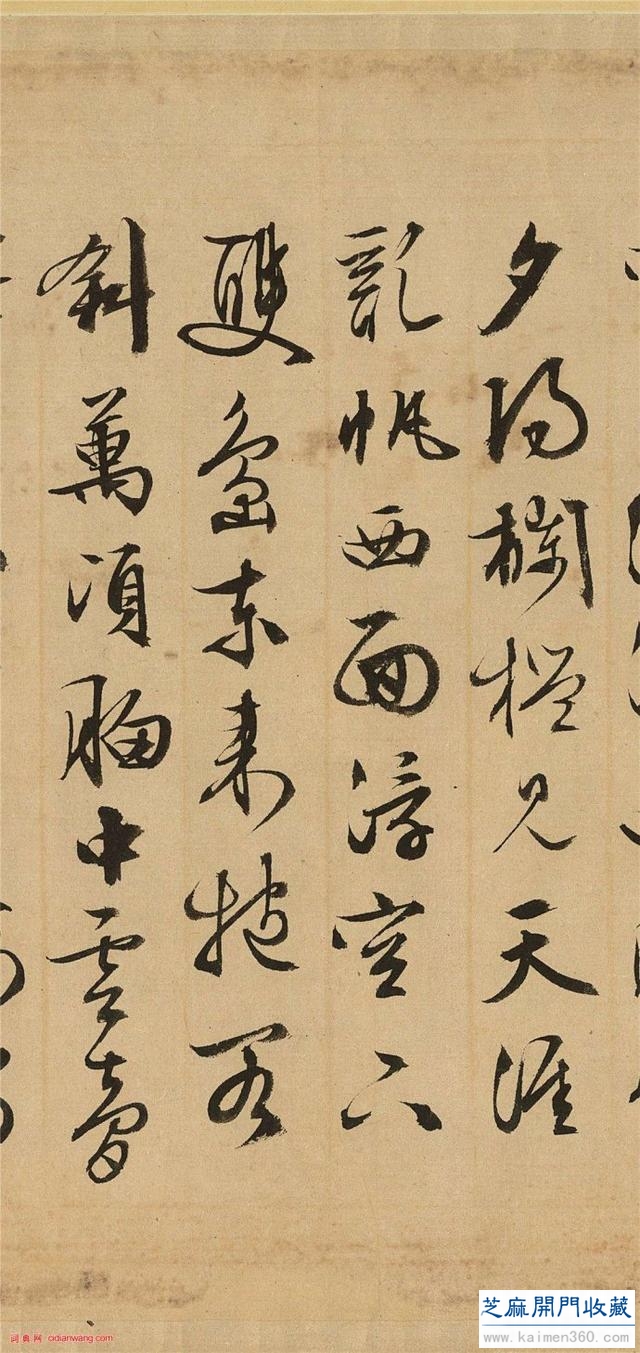 夕陽欄檻見天涯
亂帆西面浮空下
雙島東來抱閣
斜萬頃胸中雲夢
芝麻開門收藏
www.kaimen360.com
词典网 cidianwang.com